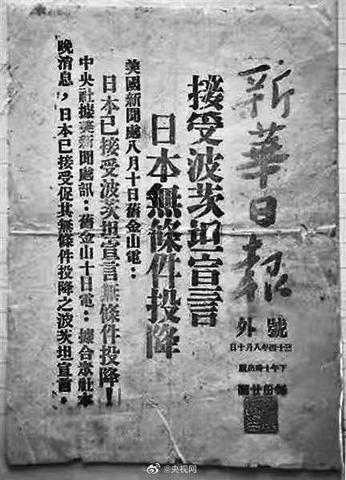 新華日報
號外
卅四年八月十日
下午十時出版
每份廿圓
接受波茨坦宣言
日本無條件投降
美國新聞處八月十日舊金山電：
日本已接受波茨坦宣言無條件投降！
中央社據美新聞處訊：舊金山十日電：據合眾社本
晚消息，日本已接受促其無條件投降之波茨坦宣言。
@央视网